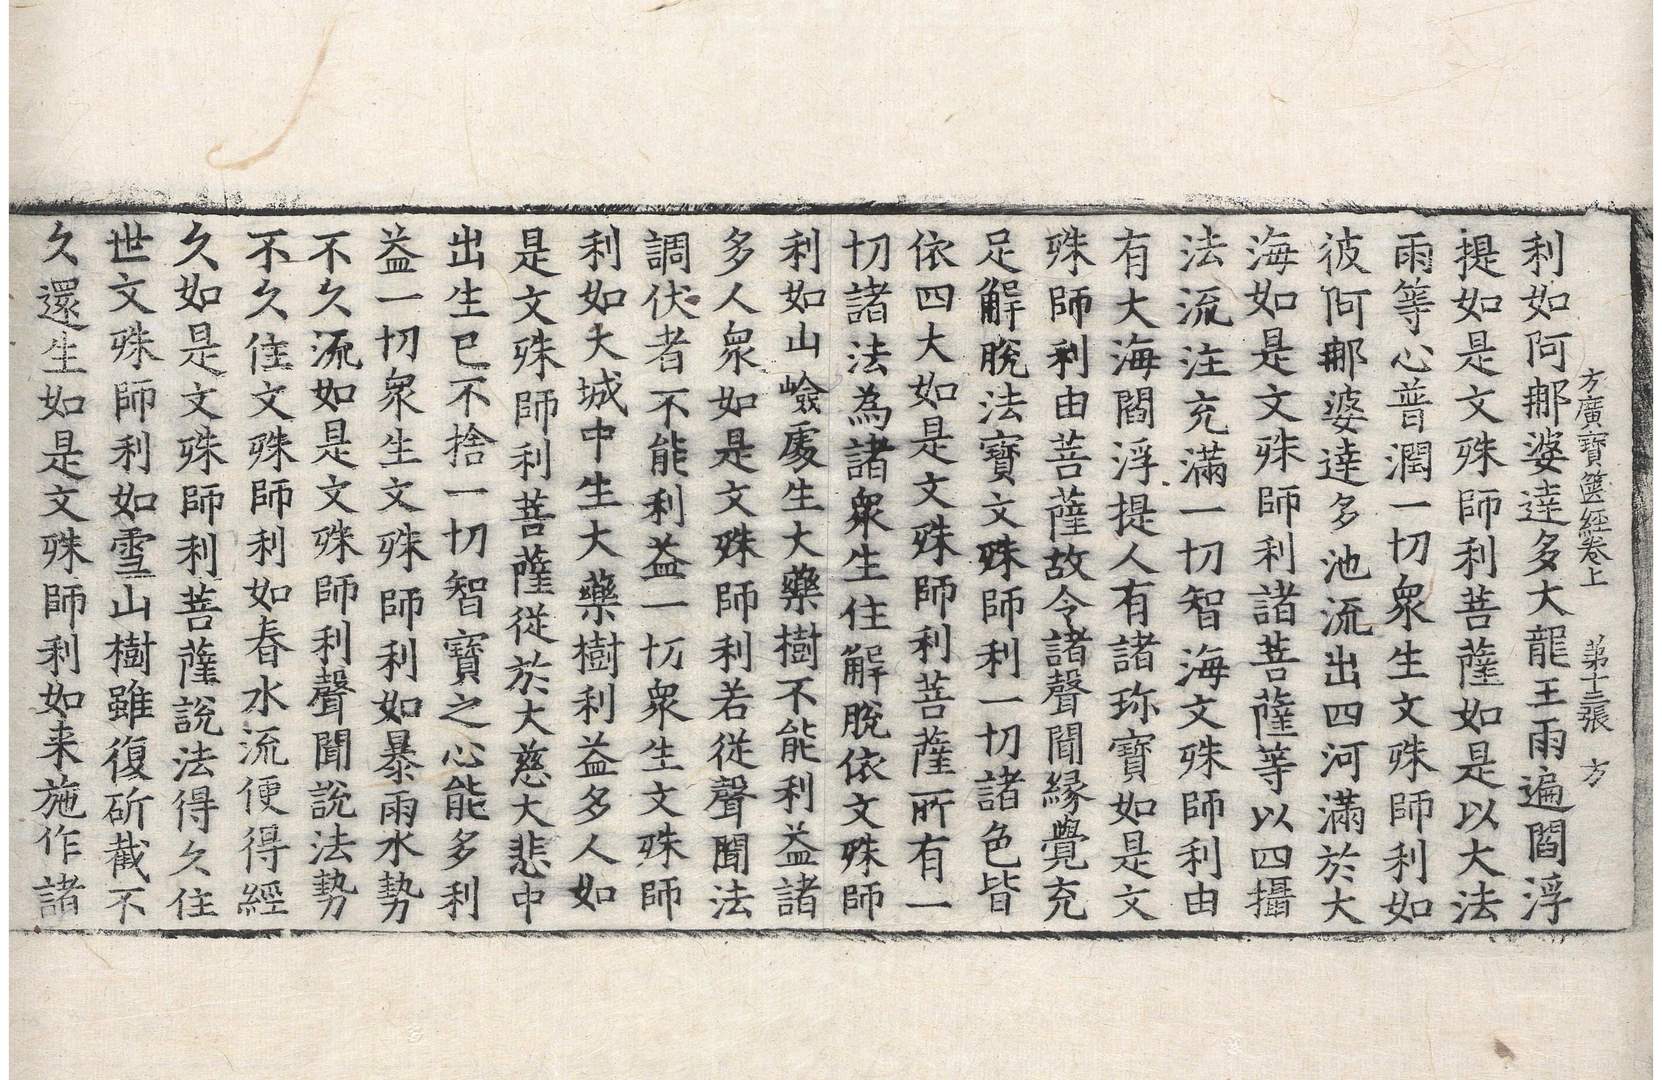 方廣寶篋經卷上 苐十三張 方
利如阿郍婆達多大龍王雨遍閻浮
提如是文殊師利菩薩如是以大法
雨等心普潤一切衆生文殊師利如
彼阿郍婆達多池流出四河滿於大
海如是文殊師利諸菩薩等以四攝
法流注充滿一切智海文殊師利由
有大海閻浮提人有諸珎寶如是文
殊師利由菩薩故令諸聲聞緣覺充
足解脫法寶文殊師利一切諸色皆
依四大如是文殊師利菩薩所有一
切諸法為諸衆生住解脫依文殊師
利如山嶮處生大藥樹不能利益諸
多人衆如是文殊師利若從聲聞法
調伏者不能利益一切衆生文殊師
利如夫城中生大藥樹利益多人如
是文殊師利菩薩從於大慈大悲中
出生已不捨一切智寶之心能多利
益一切衆生文殊師利如暴雨水勢
不久流如是文殊師利聲聞說法勢
不久住文殊師利如春水流便得經
久如是文殊師利菩薩說法得久住
世文殊師利如雪山樹雖復斫截不
久還生如是文殊師利如来施作諸